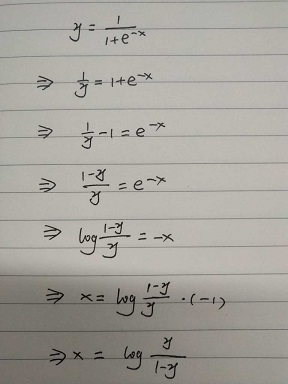 y = 1/(1+e^-x)
⇒ 1/y = 1+e^-x
⇒ 1/y - 1 = e^-x
⇒ (1-y)/y = e^-x
⇒ log (1-y)/y = -x
⇒ x = log (1-y)/y · (-1)
⇒ x = log y/(1-y)